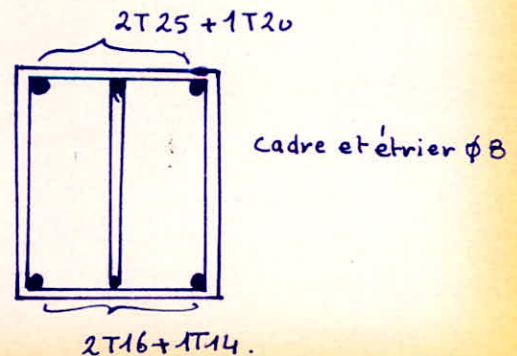 2T25 + 1T20
cadre et étrier φ8
2T16+1T14.